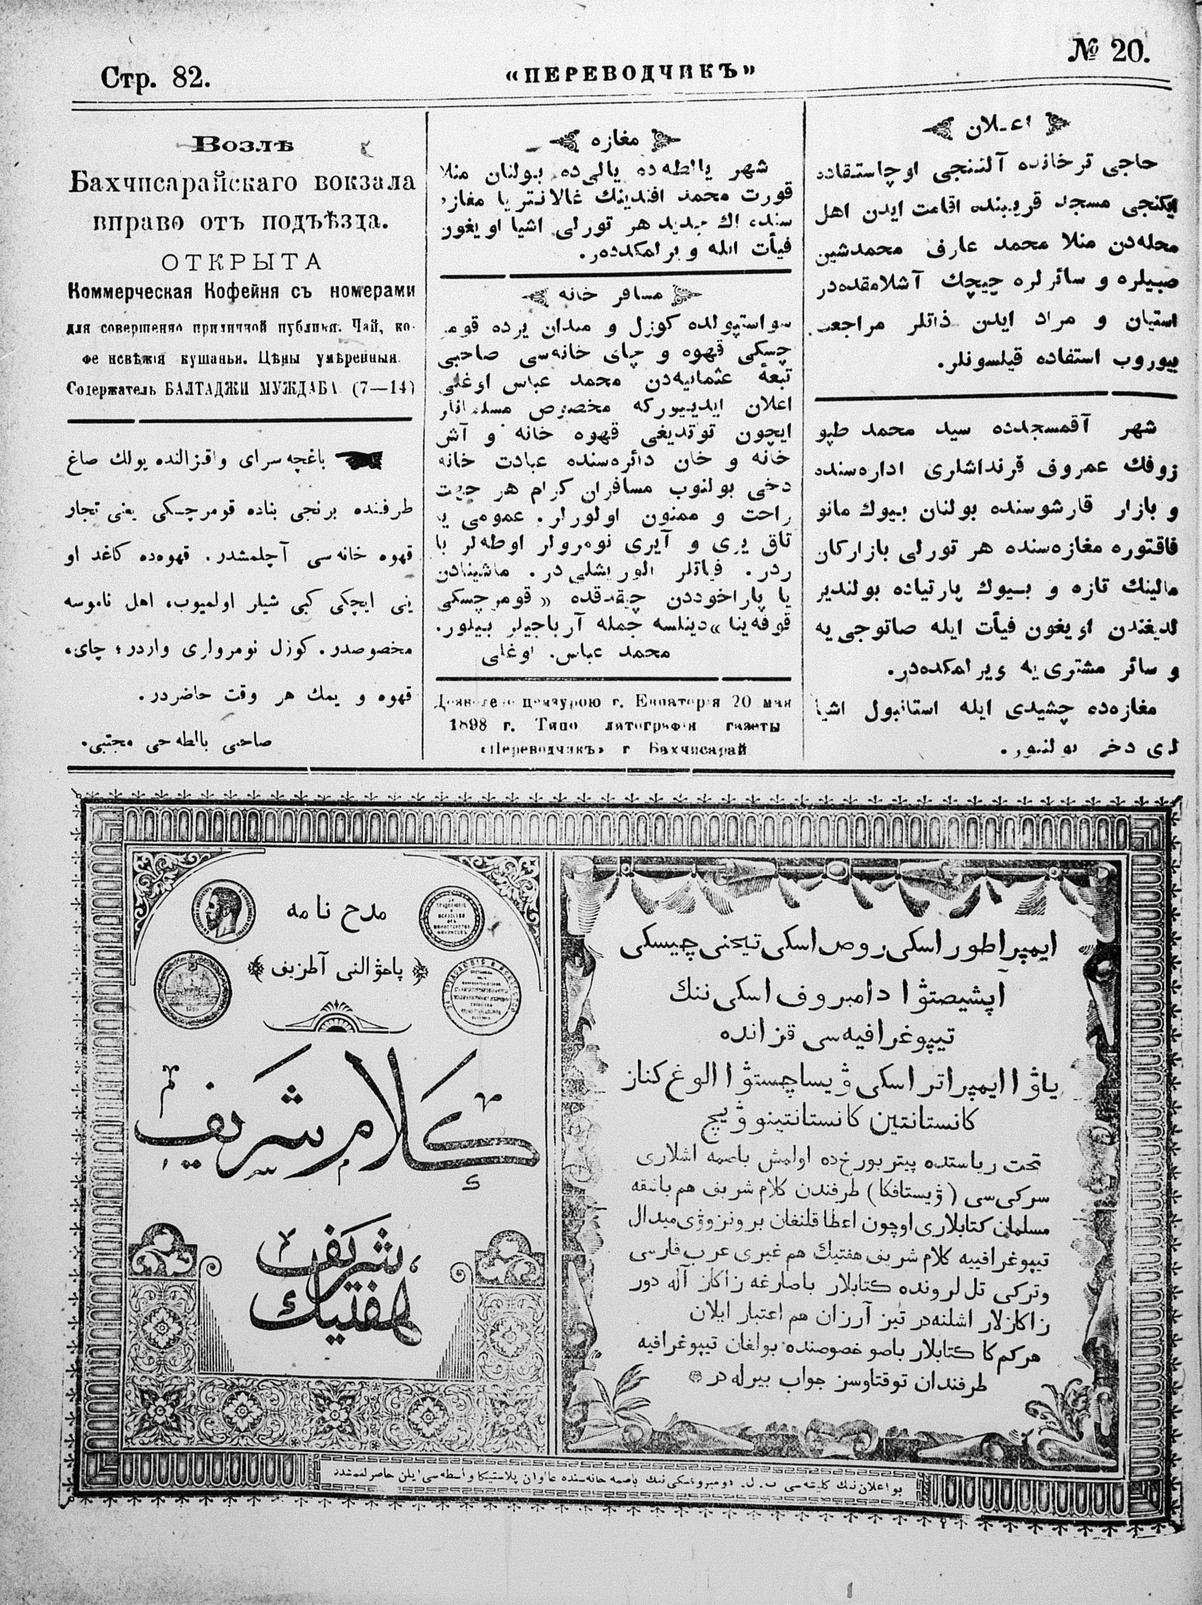 Стр. 82.
«ПЕРЕВОДЧИКЪ»
№ 20.
اعلان
حاجی ترخانده آلتنجی اوچاستقاده
ایکنجی مسجد قریبنده اقامت ایدن اهل
محله‌دن منلا محمد عارف محمدشین
صبیلره و سائرلره چیچك آشلامقده‌در
استیان و مراد ایدن ذاتلر مراجعت
بیوروب استفاده قیلسونلر.
شهر آقمسجدده سید محمد طپو
زوفك عمروف قرنداشلری اداره‌سنده
و بازار قارشوسنده بولنان بیوك مانو
فاقتوره مغازه‌سنده هر تورلی بازارکان
مالینك تازه و بیوك پارتیاده بولندیر
لدیغندن اویغون فیأت ایله صاتوجی یه
و سائر مشتری یه ویرلمکده‌در.
مغازه‌ده چشیدی ایله استانبول اشیا
لری دخی بولنور.
مغازه
شهر یالطه‌ده یالی‌ده بولنان منلا
قورت محمد افندینك غالانتریا مغازه
سنده اك جدید هر تورلی اشیا اویغون
فیأت ایله ویرلمکده‌در.
مسافر خانه
سواستپولده کوزل و میدان یرده قومر
چسکی قهوه و چای خانه‌سی صاحبی
تبعهٔ عثمانیه‌دن محمد عباس اوغلی
اعلان ایدییورکه مخصوص مسلمانلر
ایچون توتدیغی قهوه خانه و آش
خانه و خان دائره‌سنده عبادت خانه
دخی بولنوب مسافران کرام هر جهت
راحت و ممنون اولورلر. عمومی یا
تاق یری و آیری نومرولر اوطه‌لر با
ردر. فیاتلر الویریشلی در. ماشینادن
یا پاراخوددن چیقدقده «قومرچسکی
قوفه‌ینا» دینلسه جمله آرباجیلر بیلور.
محمد عباس اوغلی
Дозволено цензурою г. Евпаторія 20 мая
1898 г. Типо литографія газеты
«Переводчикъ» г. Бахчисарай
Возлѣ
Бахчисарайскаго вокзала
вправо отъ подъѣзда.
ОТКРЫТА
Коммерческая Кофейня съ номерами
для совершенно приличной публики. Чай, ко-
фе и свѣжія кушанья. Цѣны умѣренныя.
Содержатель БАЛТАДЖИ МУЖДАБА (7—14)
باغچه سرای واقزالنده یولك صاغ
طرفنده برنجی بناده قومرچسکی یعنی تجار
قهوه خانه‌سی آچلمشدر. قهوه‌ده کاغد او
ینی ایچکی کبی شیلر اولمیوب، اهل ناموسه
مخصوصدر. کوزل نومرولری واردر؛ چای،
قهوه و یمك هر وقت حاضردر.
صاحبی بالطه‌جی مجتبی.
ایمپراطوراسکی روص اسکی تیحنی چیسکی
آپشیصتوا دامبروف اسکی ننك
تیپوغرافیه‌سی قزانده
یاڤا ایمپراتراسکی ڤیساچستوا الوغ کناز
کانستانتین کانستانتینوڤیچ
تحت ریاستنده پیتربورخ‌ده اولمش باصمه اشلاری
سرکی‌سی (ڤیستافکا) طرفندن کلام شریف هم باشقه
مسلمان کتابلاری اوچون اعطا قلنغان برونزوڤی میدال
تیپوغرافییه کلام شریف هفتیك هم غیری عرب فارسی
وترکی تل لرونده کتابلار باصارغه زاکاز آله دور
زاکازلار اشلنه‌در تیز آرزان هم اعتبار ایلان
هرکم کا کتابلار باصو خصوصنده بولغان تیپوغرافیه
طرفندان توقتاوسز جواب بیرله‌در
مدح نامه
پاحوالنی آطزیف
کلام شریف
هفتیك شریف